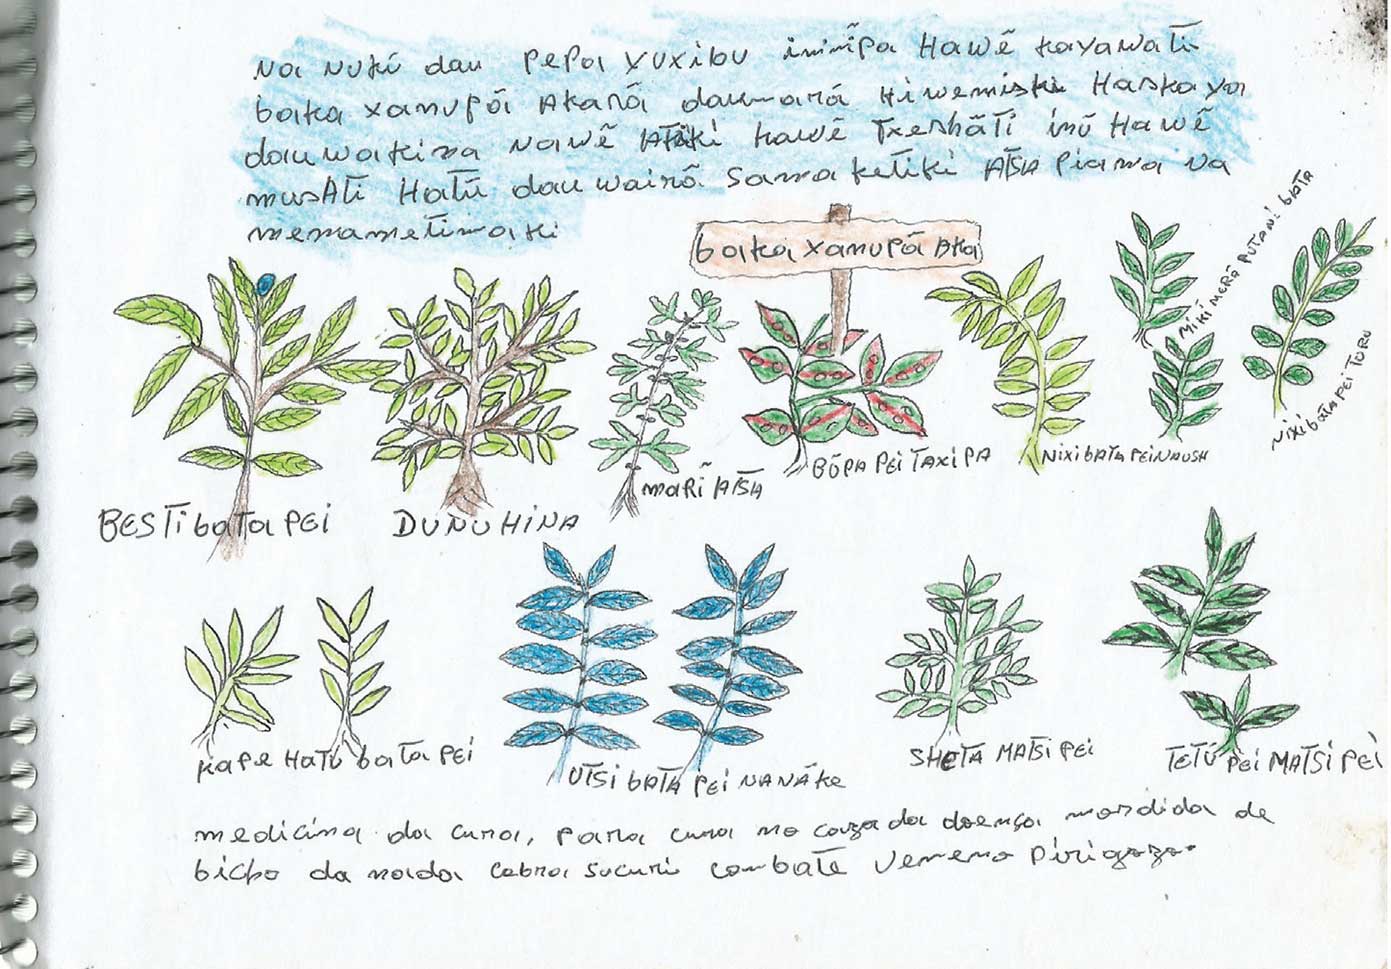 na nukũ dau pepa yuxibu ininĩpa Hawẽ kayawati
baka xanupã Akanã daumarã Hiwemiski Haskaya
dau wakina nawẽ Atiki hawẽ Txeshãti inũ Hawẽ
musAti Hatũ dau wainõ. Sama ketiki AtsA piama na
menametimaki
baka xanupã AKa
MiKi MERÃ PUTANi bATA
BESTi bATA PEi
DUNU HiNA
MARĨ ATSA
BŨPA PEi TAXiPA
NiXi bATA PEi NAUSH
NiXi bATA PEi TURU
KAPE HATŨ bATA PEi
UTSi bATA PEi NANÃKE
SHETA MATSi PEi
TETŨ PEi MATSi PEi
medicina da cura, para cura no cazada doença mordida de
bicho da nada cabra sucuri combate veneno pirigozo.